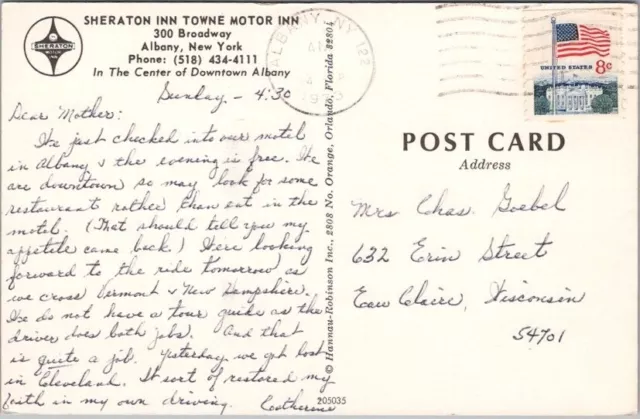 SHERATON INN TOWNE MOTOR INN
300 Broadway
Albany, New York
Phone: (518) 434-4111
In The Center of Downtown Albany
SHERATON
MOTOR
INN
Sunday - 4:30
Dear Mother:
We just checked into our motel
in Albany & the evening is free. We
are downtown so may look for some
restaurant rather than eat in the
motel. (That should tell you my
appetite came back.) Were looking
forward to the ride tomorrow as
we cross Vermont & New Hampshire.
We do not have a tour guide as the
driver does both jobs. And that
is quite a job. Yesterday we got lost
in Cleveland. It sort of restored my
faith in my own driving. Catherine
205035
© Hannau-Robinson Inc., 2808 No. Orange, Orlando, Florida 32804
ALBANY, NY 122
UNITED STATES 8c
POST CARD
Address
Mrs Chas. Goebel
632 Erin Street
Eau Claire, Wisconsin
54701